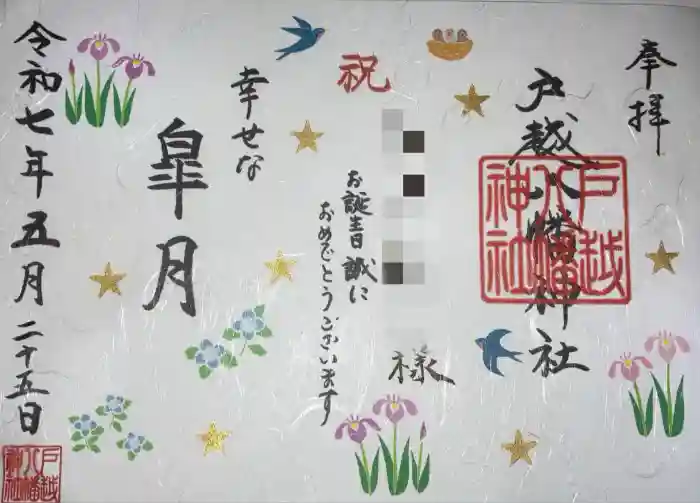 奉拝
戸越八幡神社
戸越
八幡
神社
祝
様
お誕生日誠に
おめでとうございます
幸せな
皐月
令和七年五月二十五日
戸越
八幡
神社